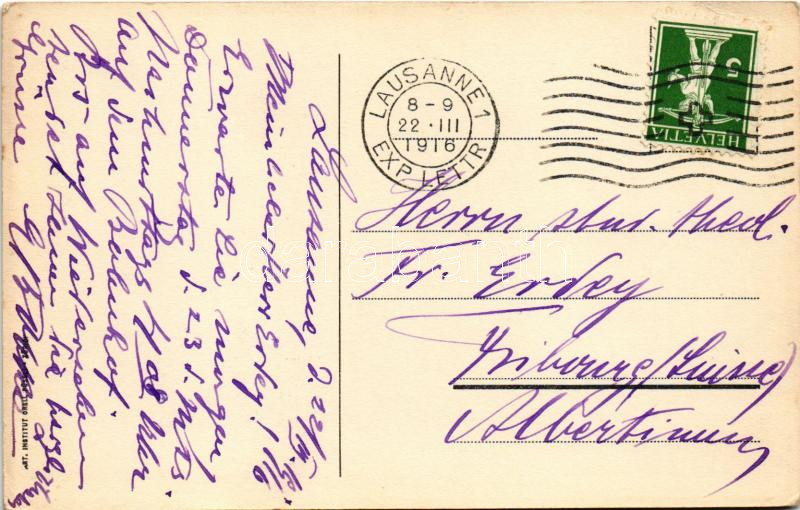 Lausanne, d. 22/III. 16
Mein lieber Herr Erdey!
Erwarte Sie morgen
Donnerstag d. 23. d. Mts.
Nachmittags 4 08 Uhr
auf dem Bahnhof.
Bis auf Wiedersehen
sendet Ihnen die herzlichsten
Grüsse
LAUSANNE 1
8-9
22·III
1916
EXP. LETTR
HELVETIA
5
Herrn stud. theol.
Fr. Erdey
Fribourg (Suisse)
Albertinum
ART. INSTITUT ORELL
darabanth